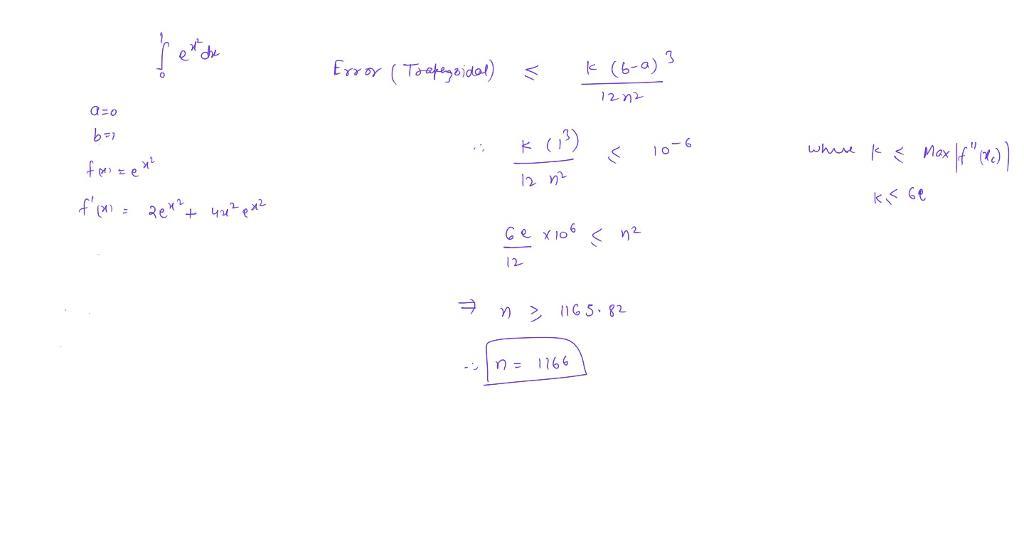 ∫₀¹ e^{x²} dx
a=0
b=1
f(x) = e^{x²}
f'(x) = 2e^{x²} + 4x² e^{x²}
Error (Trapezoidal) ≤ K (b-a)³ / 12n²
∴ K (1³) / 12 n² ≤ 10⁻⁶
where K ≤ Max |f''(x_c)|
K ≤ 6e
6e / 12 × 10⁶ ≤ n²
⇒ n ≥ 1165.82
∴ n = 1166